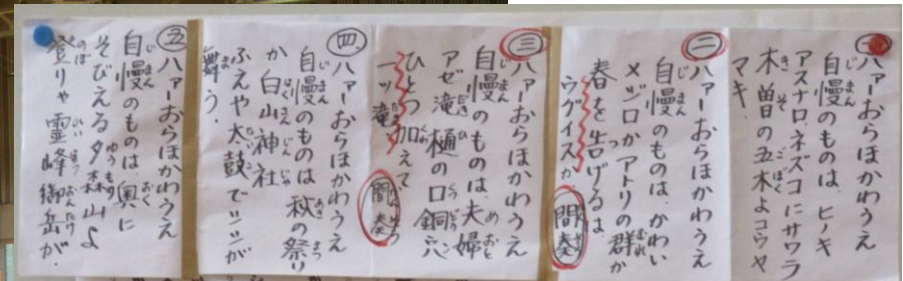 ハァーおらほかわうえ
自慢のものは、ヒノキ
アスナロ、ネズコにサワラ
木曽の五木よコウヤ
マキ
二 ハァーおらほかわうえ
自慢のものは、かわい
メジロかアトリの群か
春を告げるは
ウグイスか 間奏
三 ハァーおらほかわうえ
自慢のものは、夫婦
アゼ滝樋の口銅穴
ひとつ加えて
一ツ滝 間奏
四 ハァーおらほかわうえ
自慢のものは 秋の祭り
か白山神社
ふえや太鼓でシシが
舞う。
五 ハァーおらほかわうえ
自慢のものは、奥に
そびえる夕森山よ
登りゃ霊峰御岳が.